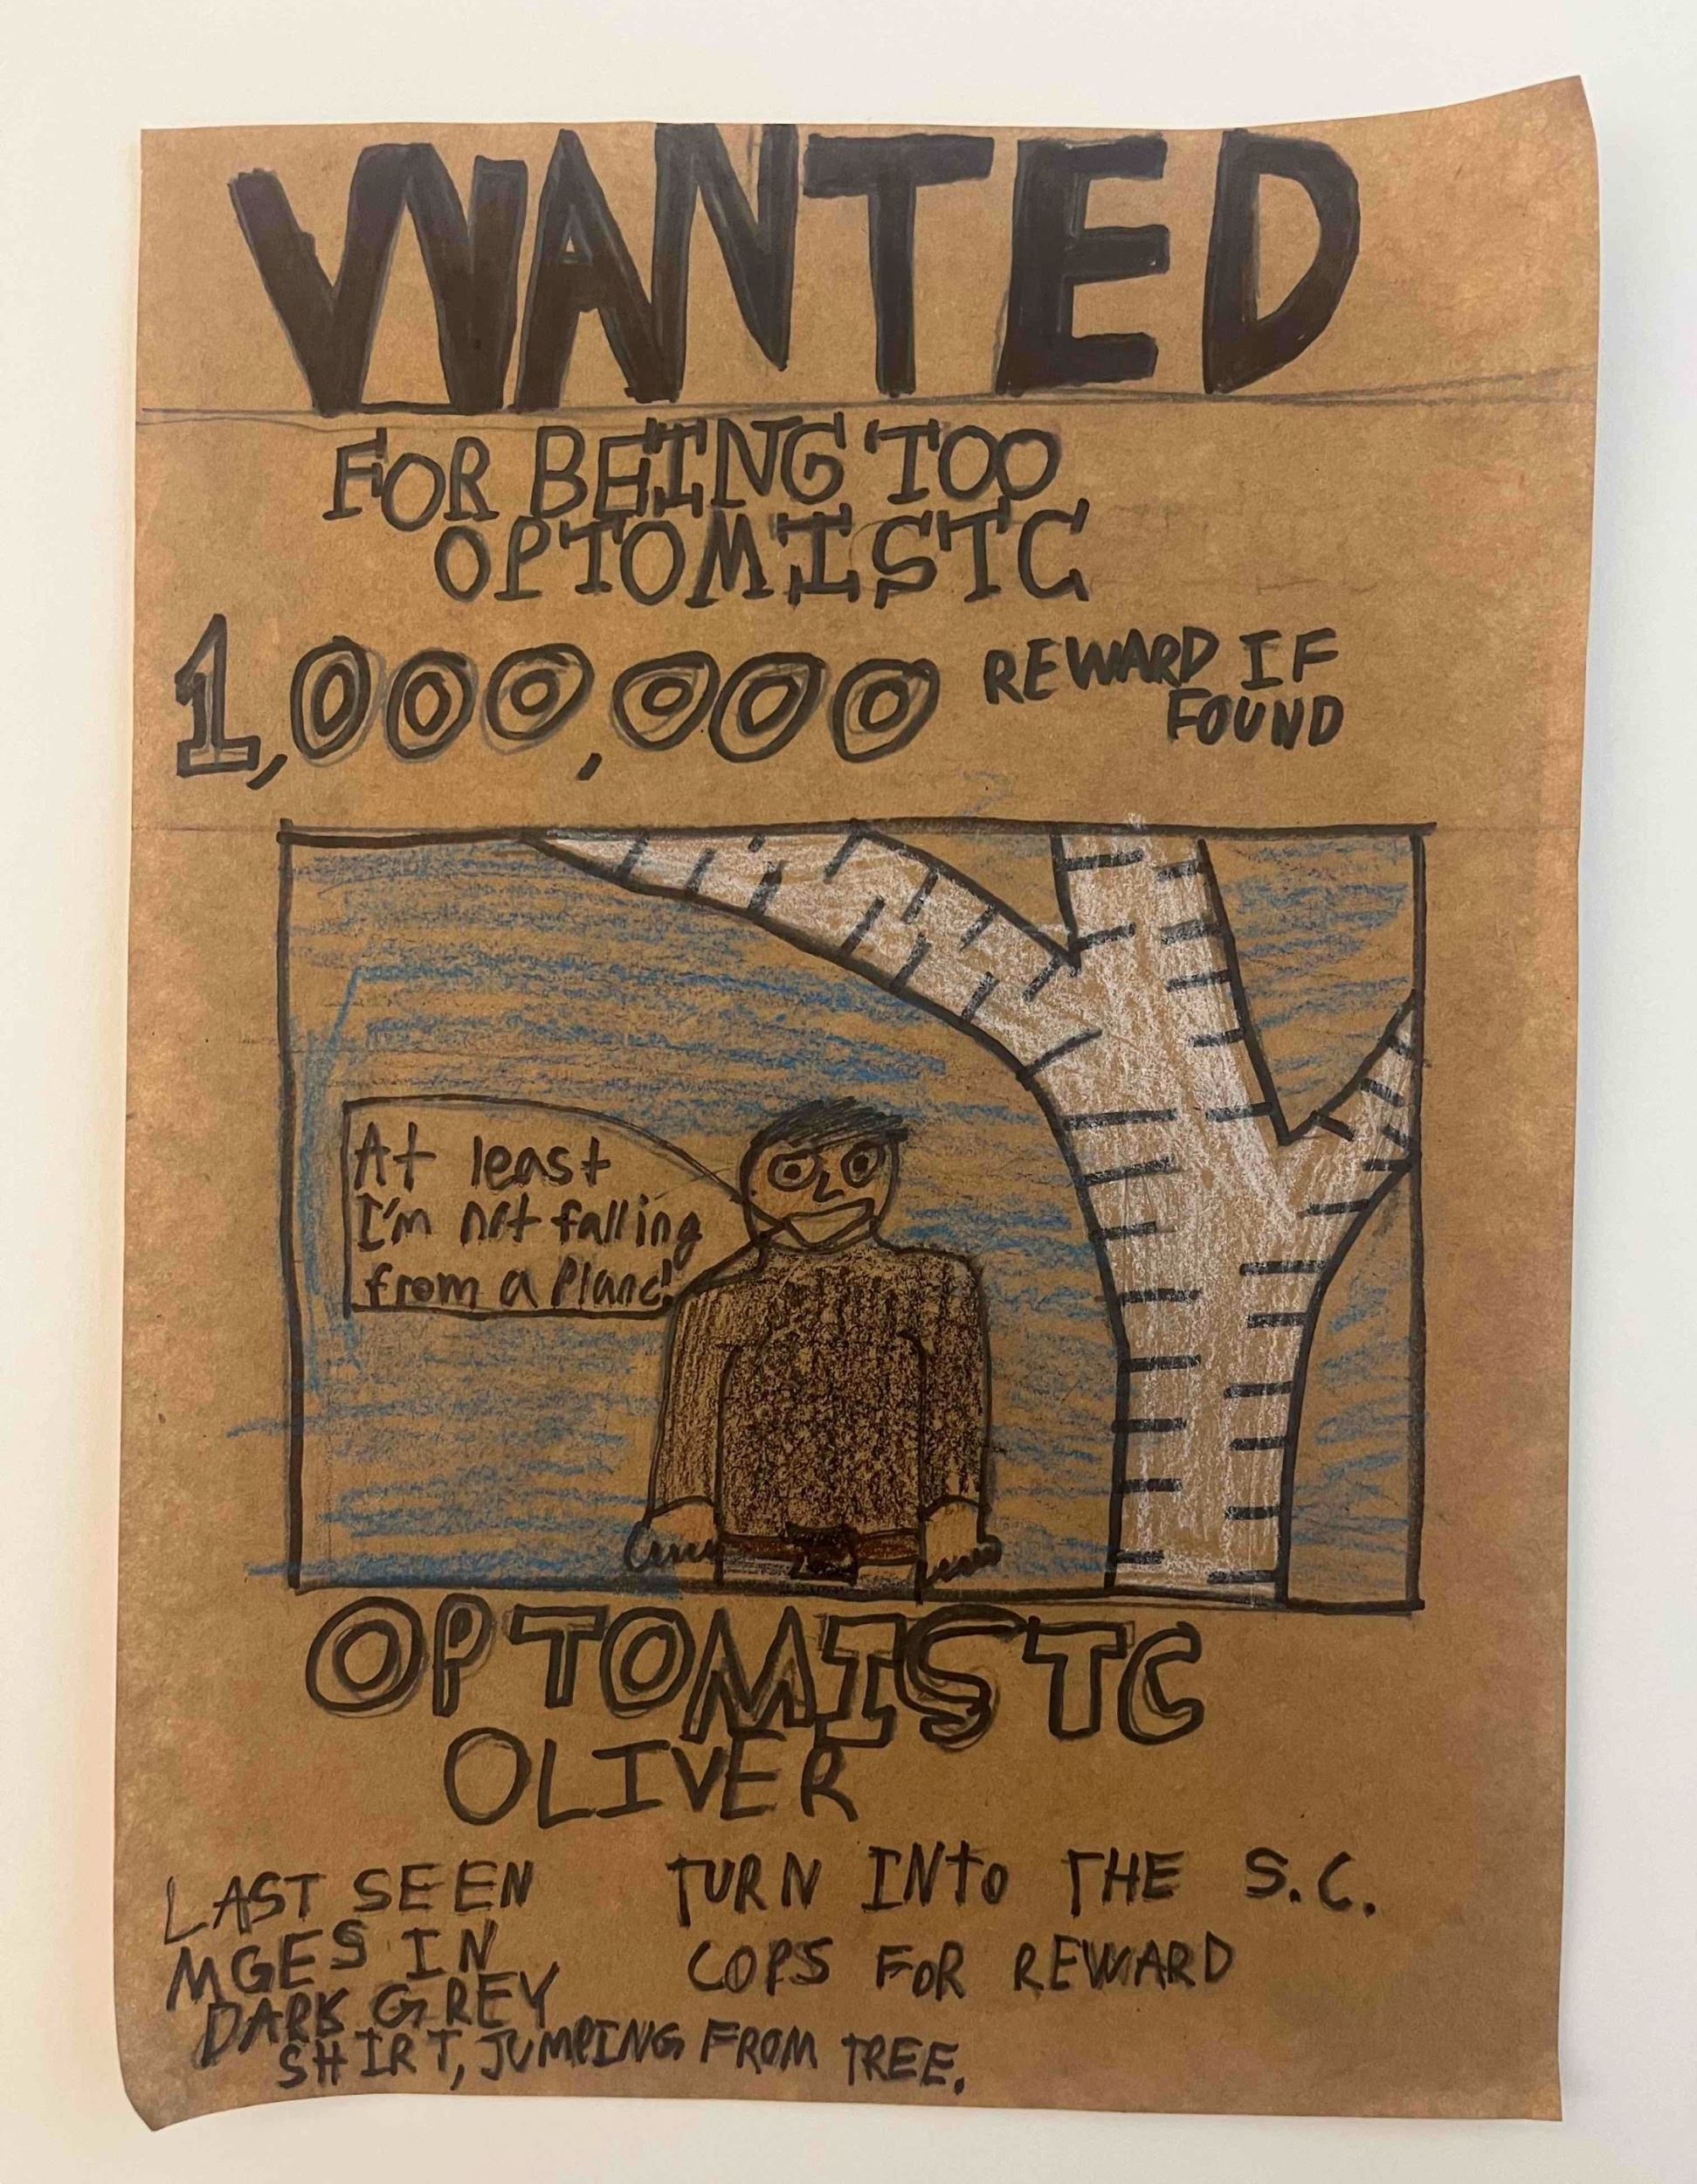 WANTED
FOR BEING TOO
OPTOMISTC
1,000,000 REWARD IF
FOUND
At least
I'm not falling
from a Plane!
OPTOMISTC
OLIVER
LAST SEEN
MGES IN
DARK GREY
SHIRT, JUMPING FROM TREE.
TURN INTO THE S.C.
COPS FOR REWARD